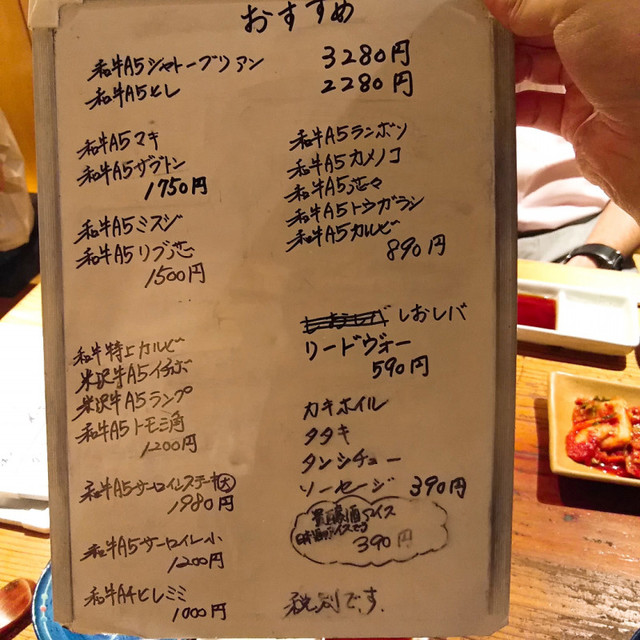 おすすめ
和牛A5シャトーブリアン 3280円
和牛A5ヒレ 2280円
和牛A5マキ
和牛A5ザブトン
1750円
和牛A5ミスジ
和牛A5リブ芯
1500円
和牛特上カルビ
米沢牛A5イチボ
米沢牛A5ランプ
和牛A5トモ三角
1200円
和牛A5サーロインステーキ大
1980円
和牛A5サーロイン小
1200円
和牛A4ヒレミミ
1000円
和牛A5ランボソ
和牛A5カメノコ
和牛A5芯々
和牛A5トウガラシ
和牛A5カルビ
890円
しおレバ
リードヴォー
590円
カキホイル
タタキ
タンシチュー
ソーセージ 390円
貴醸酒アイス
日本酒のアイスです
390円
税別です.